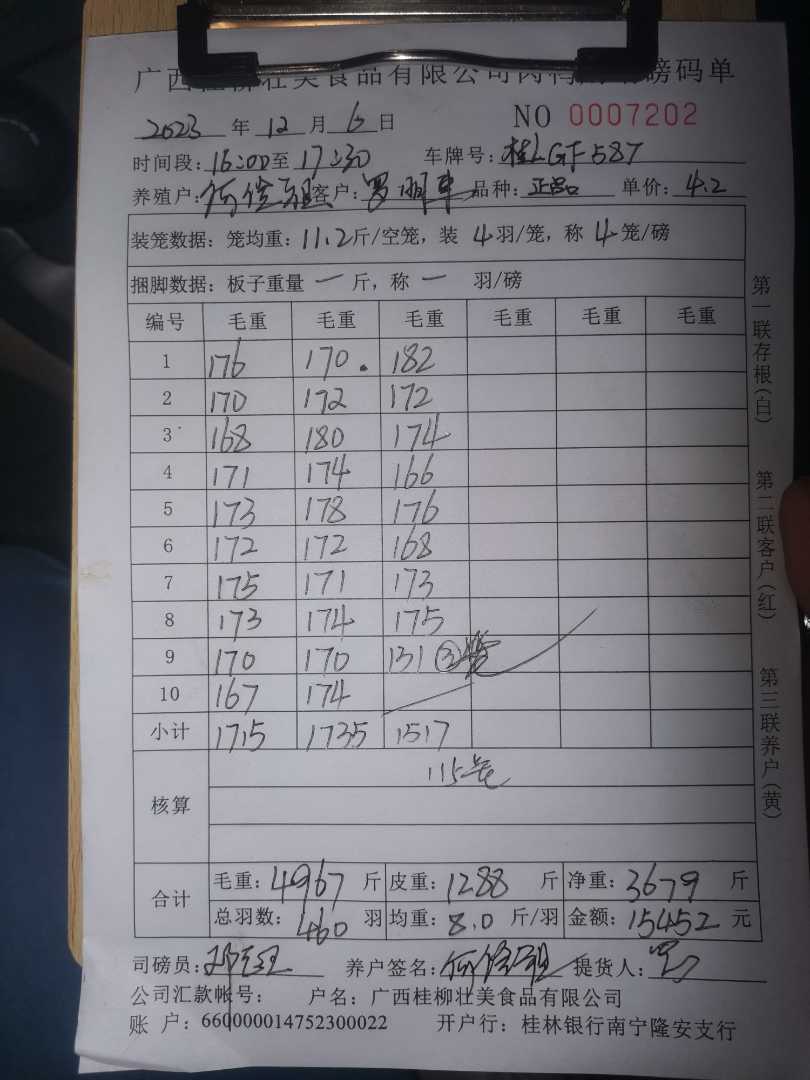 广西桂柳壮美食品有限公司肉鸭 磅码单
2023 年 12 月 6 日 NO 0007202
时间段: 16:00 至 17:30 车牌号: 桂LGF587
养殖户: 何 祖 客户: 罗明 品种: 正 单价: 4.2
装笼数据: 笼均重: 11.2 斤/空笼, 装 4 羽/笼, 称 4 笼/磅
捆脚数据: 板子重量 一 斤, 称 一 羽/磅
编号 毛重 毛重 毛重 毛重 毛重 毛重
1 176 170. 182
2 170 172 172
3 168 180 174
4 171 174 166
5 173 178 176
6 172 172 168
7 175 171 173
8 173 174 175
9 170 170 131 ③笼
10 167 174
小计 1715 1735 1517
核算 115笼
合计 毛重: 4967 斤 皮重: 1288 斤 净重: 3679 斤
总羽数: 460 羽 均重: 8.0 斤/羽 金额: 15452 元
司磅员: 养户签名: 何 祖 提货人: 罗
公司汇款帐号: 户名: 广西桂柳壮美食品有限公司
账 户: 660000014752300022 开户行: 桂林银行南宁隆安支行
第一联存根(白) 第二联客户(红) 第三联养户(黄)